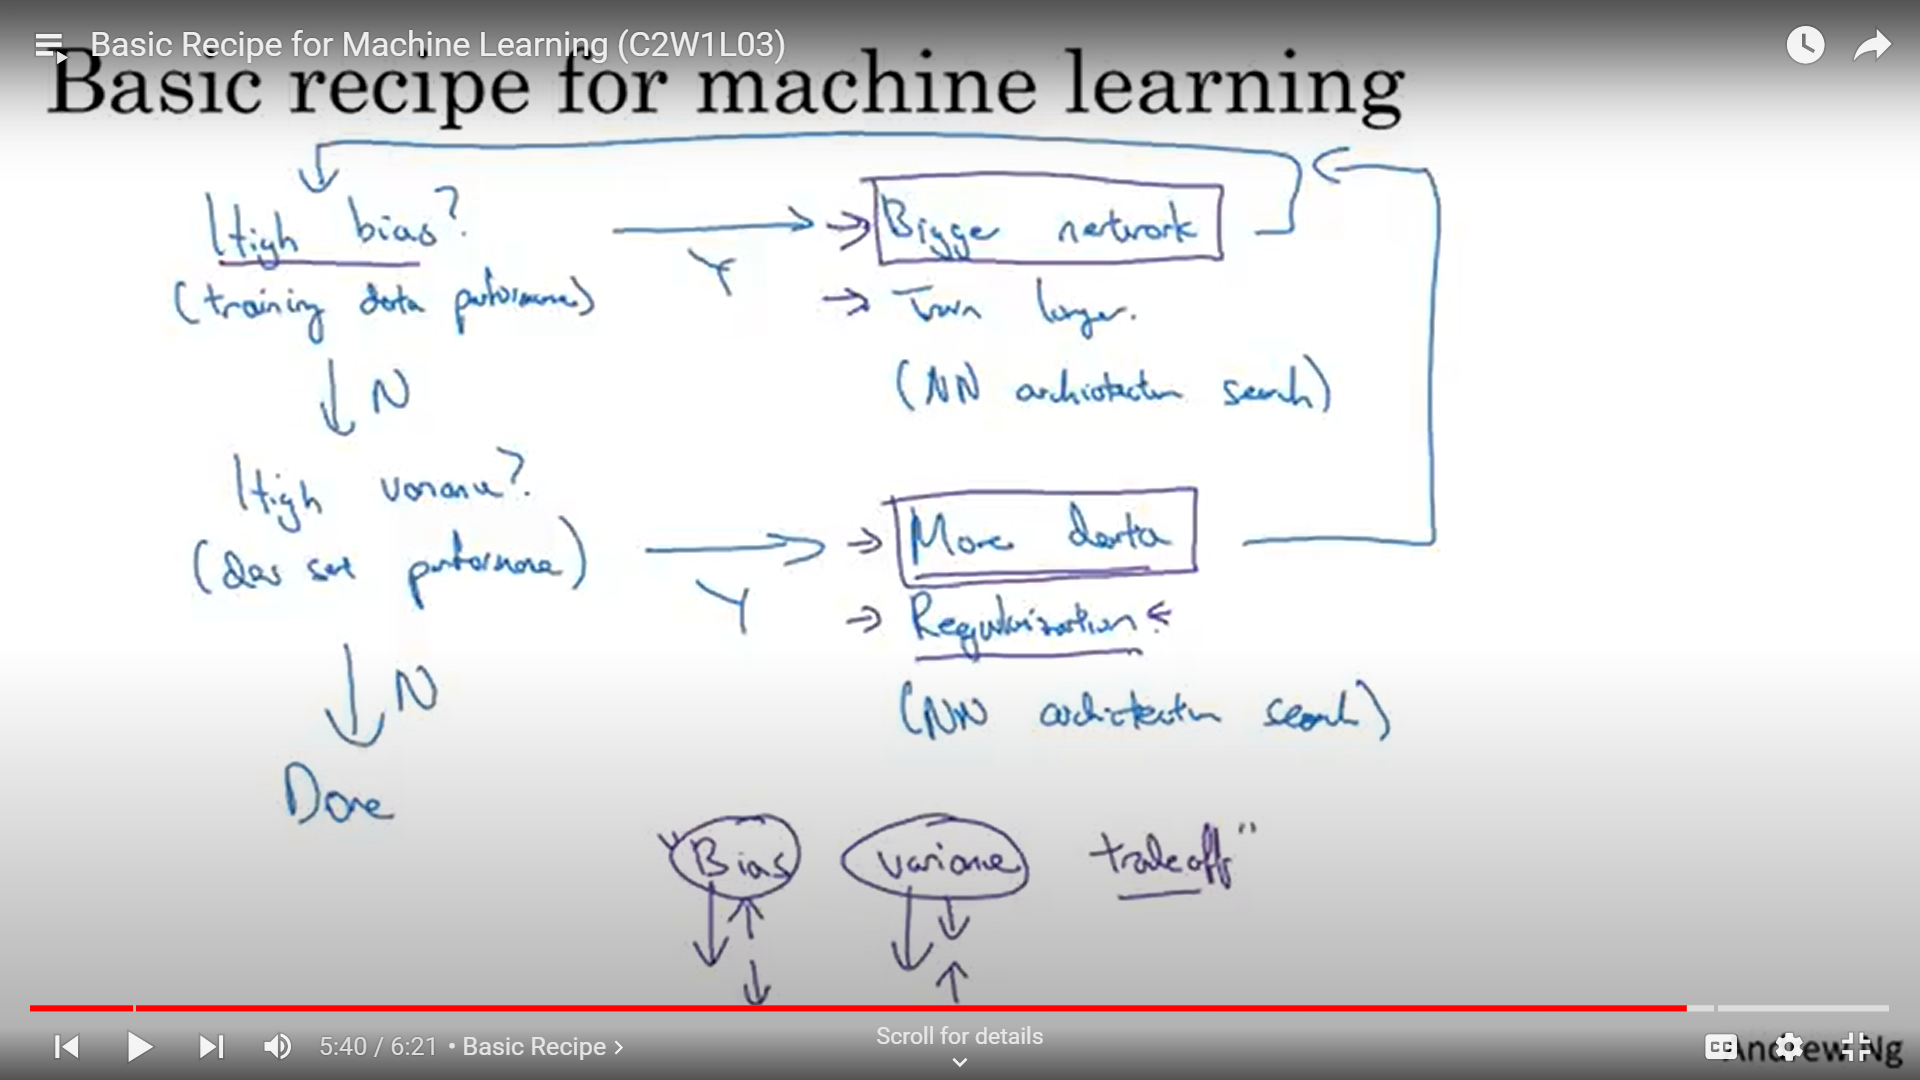 Basic Recipe for Machine Learning (C2W1L03)
Basic recipe for machine learning
High bias?
(training data performance)
Y
Bigger network
Train longer.
(NN architecture search)
N
High variance?
(dev set performance)
Y
More data
Regularization
(NN architecture search)
N
Done
"Bias variance tradeoff"
5:40 / 6:21 • Basic Recipe >
Scroll for details
CC
Andrew Ng